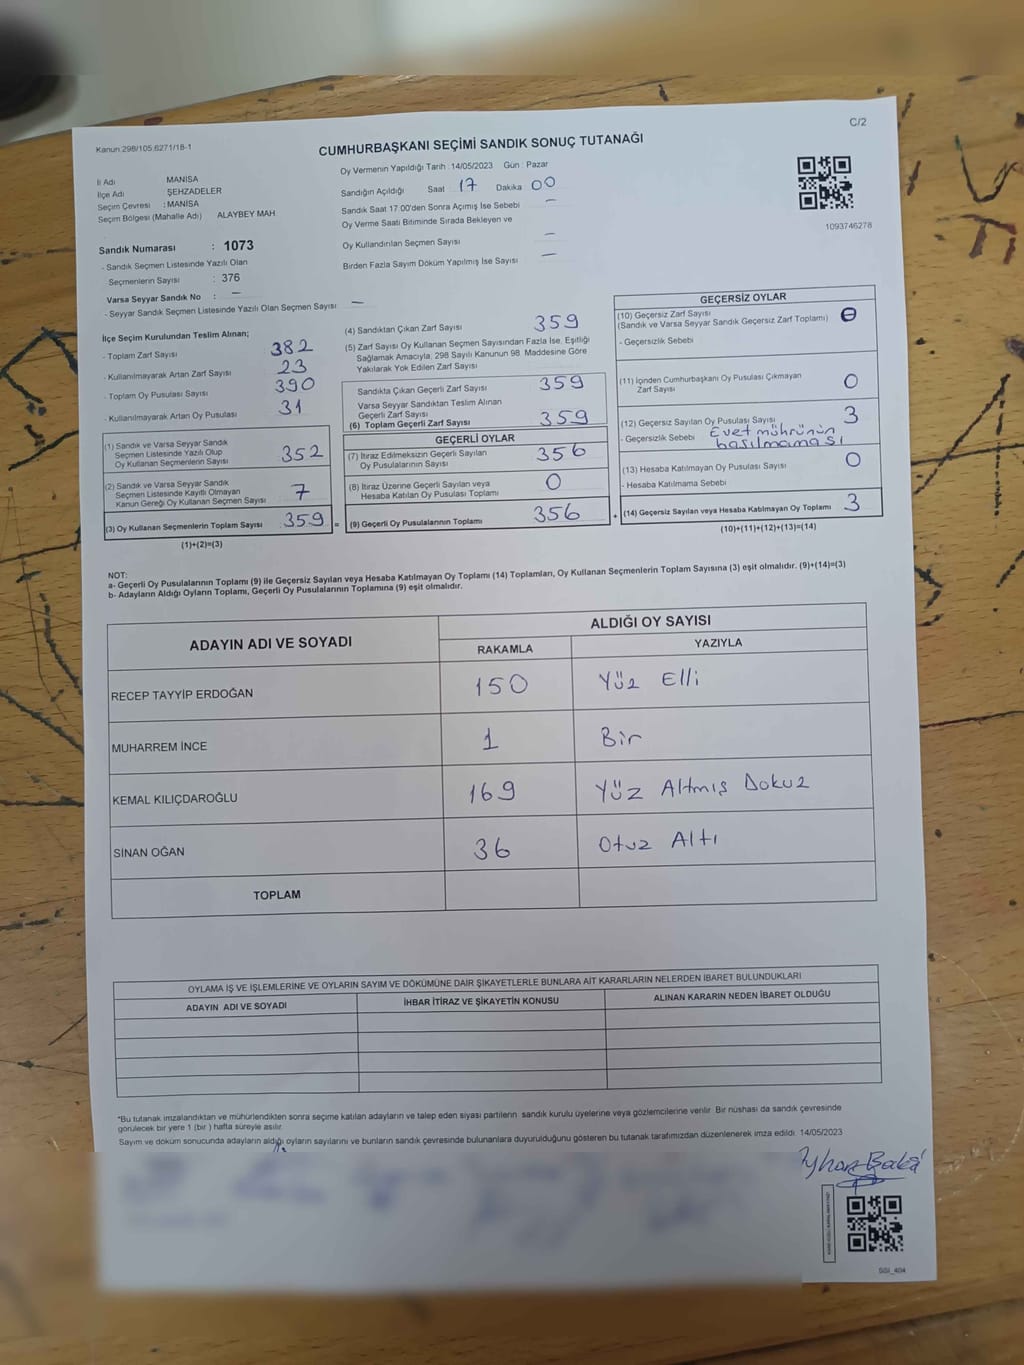 Kanun 298/105 6271/18-1
C/2
CUMHURBAŞKANI SEÇİMİ SANDIK SONUÇ TUTANAĞI
İl Adı MANİSA
İlçe Adı : ŞEHZADELER
Seçim Çevresi : MANİSA
Seçim Bölgesi (Mahalle Adı) ALAYBEY MAH
Sandık Numarası : 1073
- Sandık Seçmen Listesinde Yazılı Olan
Seçmenlerin Sayısı : 376
Varsa Seyyar Sandık No : –
- Seyyar Sandık Seçmen Listesinde Yazılı Olan Seçmen Sayısı –
Oy Vermenin Yapıldığı Tarih : 14/05/2023 Gün : Pazar
Sandığın Açıldığı Saat 17 Dakika 00
Sandık Saat 17.00'den Sonra Açımış İse Sebebi –
Oy Verme Saati Bitiminde Sırada Bekleyen ve
Oy Kullandırılan Seçmen Sayısı –
Birden Fazla Sayım Döküm Yapılmış İse Sayısı –
1093746278
İlçe Seçim Kurulundan Teslim Alınan;
- Toplam Zarf Sayısı 382
- Kullanılmayarak Artan Zarf Sayısı 23
- Toplam Oy Pusulası Sayısı 390
- Kullanılmayarak Artan Oy Pusulası 31
(1) Sandık ve Varsa Seyyar Sandık
Seçmen Listesinde Yazılı Olup
Oy Kullanan Seçmenlerin Sayısı 352
(2) Sandık ve Varsa Seyyar Sandık
Seçmen Listesinde Kayıtlı Olmayan
Kanun Gereği Oy Kullanan Seçmen Sayısı 7
(3) Oy Kullanan Seçmenlerin Toplam Sayısı 359 =
(1)+(2)=(3)
(4) Sandıktan Çıkan Zarf Sayısı 359
(5) Zarf Sayısı Oy Kullanan Seçmen Sayısından Fazla İse, Eşitliği
Sağlamak Amacıyla, 298 Sayılı Kanunun 98. Maddesine Göre
Yakılarak Yok Edilen Zarf Sayısı
Sandıkta Çıkan Geçerli Zarf Sayısı 359
Varsa Seyyar Sandıktan Teslim Alınan
Geçerli Zarf Sayısı
(6) Toplam Geçerli Zarf Sayısı 359
GEÇERLİ OYLAR
(7) İtiraz Edilmeksizin Geçerli Sayılan
Oy Pusulalarının Sayısı 356
(8) İtiraz Üzerine Geçerli Sayılan veya
Hesaba Katılan Oy Pusulası Toplamı 0
(9) Geçerli Oy Pusulalarının Toplamı 356 +
GEÇERSİZ OYLAR
(10) Geçersiz Zarf Sayısı
(Sandık ve Varsa Seyyar Sandık Geçersiz Zarf Toplamı) 0
- Geçersizlik Sebebi
(11) İçinden Cumhurbaşkanı Oy Pusulası Çıkmayan
Zarf Sayısı 0
(12) Geçersiz Sayılan Oy Pusulası Sayısı 3
- Geçersizlik Sebebi Evet mührünün
basılmaması
(13) Hesaba Katılmayan Oy Pusulası Sayısı 0
- Hesaba Katılmama Sebebi
(14) Geçersiz Sayılan veya Hesaba Katılmayan Oy Toplamı 3
(10)+(11)+(12)+(13)=(14)
NOT:
a- Geçerli Oy Pusulalarının Toplamı (9) ile Geçersiz Sayılan veya Hesaba Katılmayan Oy Toplamı (14) Toplamları, Oy Kullanan Seçmenlerin Toplam Sayısına (3) eşit olmalıdır. (9)+(14)=(3)
b- Adayların Aldığı Oyların Toplamı, Geçerli Oy Pusulalarının Toplamına (9) eşit olmalıdır.
ADAYIN ADI VE SOYADI
ALDIĞI OY SAYISI
RAKAMLA YAZIYLA
RECEP TAYYİP ERDOĞAN 150 Yüz Elli
MUHARREM İNCE 1 Bir
KEMAL KILIÇDAROĞLU 169 Yüz Altmış Dokuz
SİNAN OĞAN 36 Otuz Altı
TOPLAM
OYLAMA İŞ VE İŞLEMLERİNE VE OYLARIN SAYIM VE DÖKÜMÜNE DAİR ŞİKAYETLERLE BUNLARA AİT KARARLARIN NELERDEN İBARET BULUNDUKLARI
ADAYIN ADI VE SOYADI İHBAR İTİRAZ VE ŞİKAYETİN KONUSU ALINAN KARARIN NEDEN İBARET OLDUĞU
*Bu tutanak imzalandıktan ve mühürlendikten sonra seçime katılan adayların ve talep eden siyasi partilerin sandık kurulu üyelerine veya gözlemcilerine verilir. Bir nüshası da sandık çevresinde
görülecek bir yere 1 (bir ) hafta süreyle asılır.
Sayım ve döküm sonucunda adayların aldığı oyların sayılarını ve bunların sandık çevresinde bulunanlara duyurulduğunu gösteren bu tutanak tarafımızdan düzenlenerek imza edildi. 14/05/2023
SSI_404